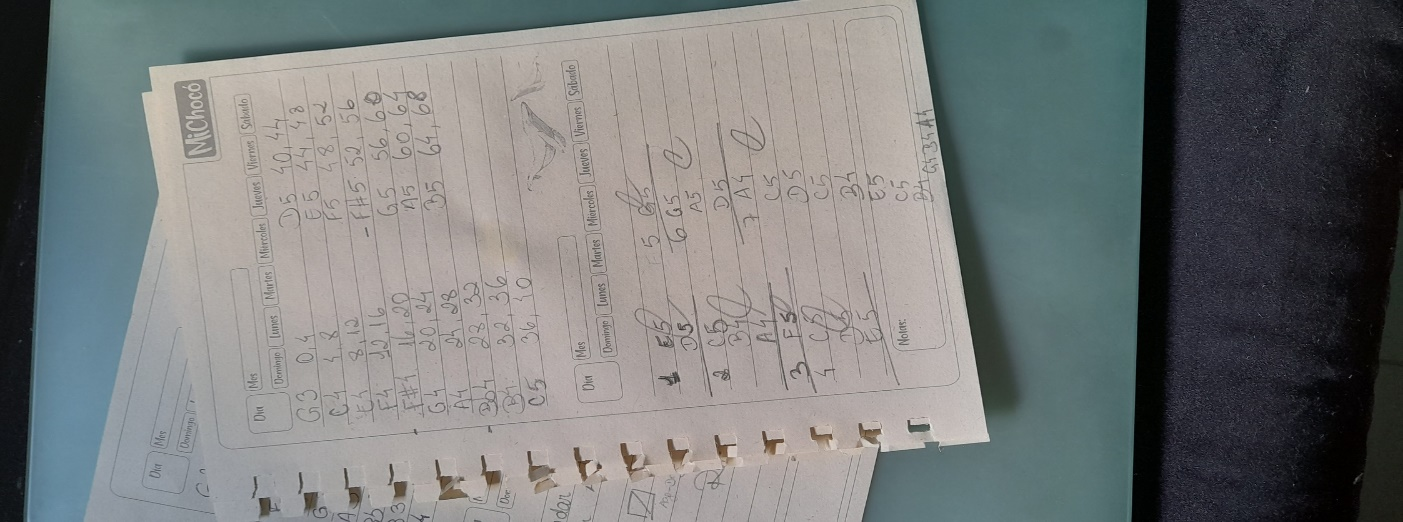 MiChocó
Día Mes
Domingo Lunes Martes Miércoles Jueves Viernes Sábado
G3 0,4
C4 4,8
E4 8,12
F4 12,16
- F#4 16,20
G4 20,24
A4 24,28
- Bb4 28,32
B4 32,36
C5 36,40
D5 40,44
E5 44,48
F5 48,52
- F#5 52,56
G5 56,60
A5 60,64
B5 64,68
Día Mes
Domingo Lunes Martes Miércoles Jueves Viernes Sábado
1 E5
D5
2 C5
B4
A4
3 F5
4 C5
G5
5
6 G5
A5
D5
7 A4
C5
D5
C5
B4
E5
C5
B4 G4 B4 A4
Notas:
Día Mes
Domingo